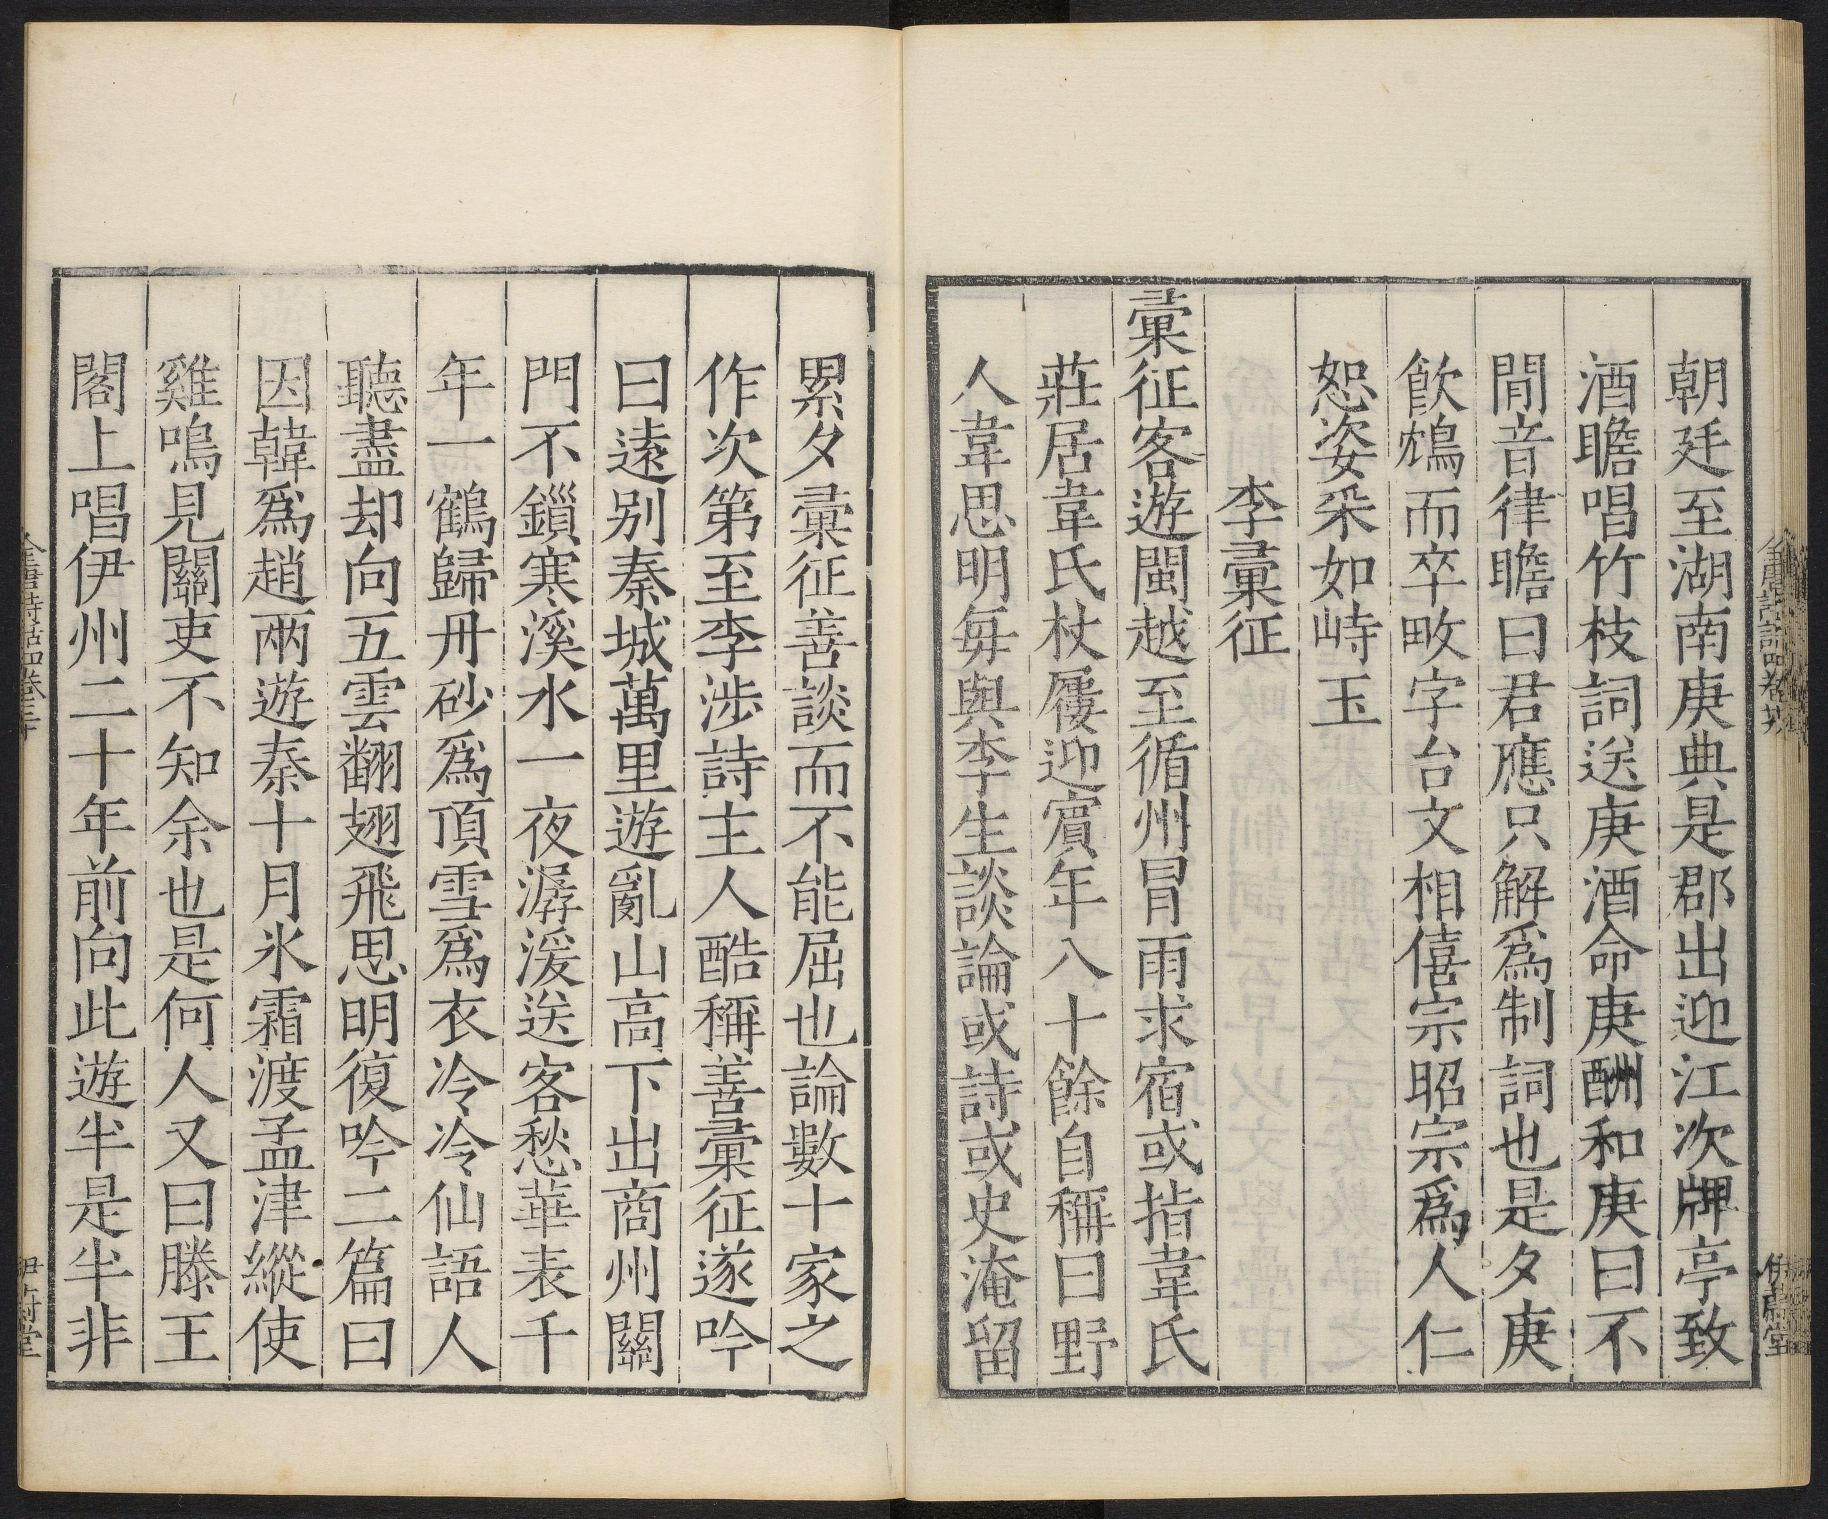 朝廷至湖南庚典是郡出迎江次牌亭致
酒瞻唱竹枝詞送庚酒命庚酬和庚曰不
閒音律瞻曰君應只解爲制詞也是夕庚
飲鴆而卒畋字台文相僖宗昭宗爲人仁
恕姿采如峙玉
李彚征
彚征客遊閩越至循州冒雨求宿或指韋氏
莊居韋氏杖屨迎賔年八十餘自稱曰野
人韋思明毎與李生談論或詩或史淹留
累夕彚征善談而不能屈也論數十家之
作次第至李涉詩主人酷稱善彚征遂吟
曰遠别秦城萬里遊亂山高下出商州關
門不鎻寒溪水一夜潺湲送客愁華表千
年一鶴歸丹砂爲頂雪爲衣冷冷仙語人
聽盡却向五雲翻翅飛思明復吟二篇曰
因韓爲趙兩遊秦十月氷霜渡孟津縱使
雞鳴見關吏不知余也是何人又曰滕王
閣上唱伊州二十年前向此遊半是半非